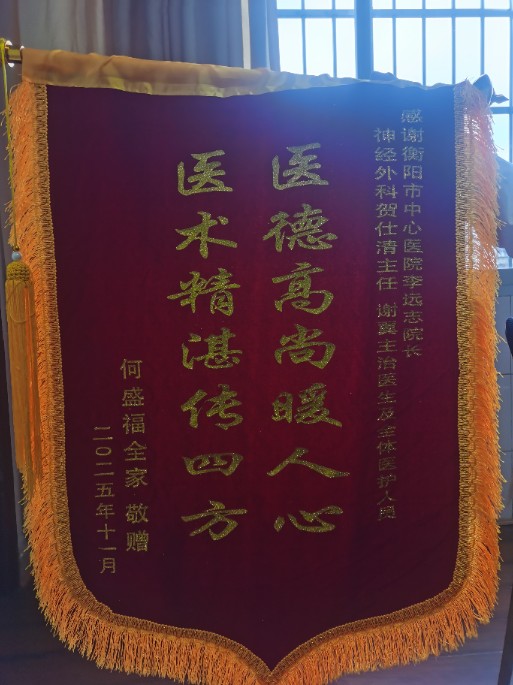 感谢衡阳市中心医院李远志院长
神经外科贺仕清主任 谢冀主治医生及全体医护人员
医德高尚暖人心
医术精湛传四方
何盛福全家 敬赠
二〇二五年十一月